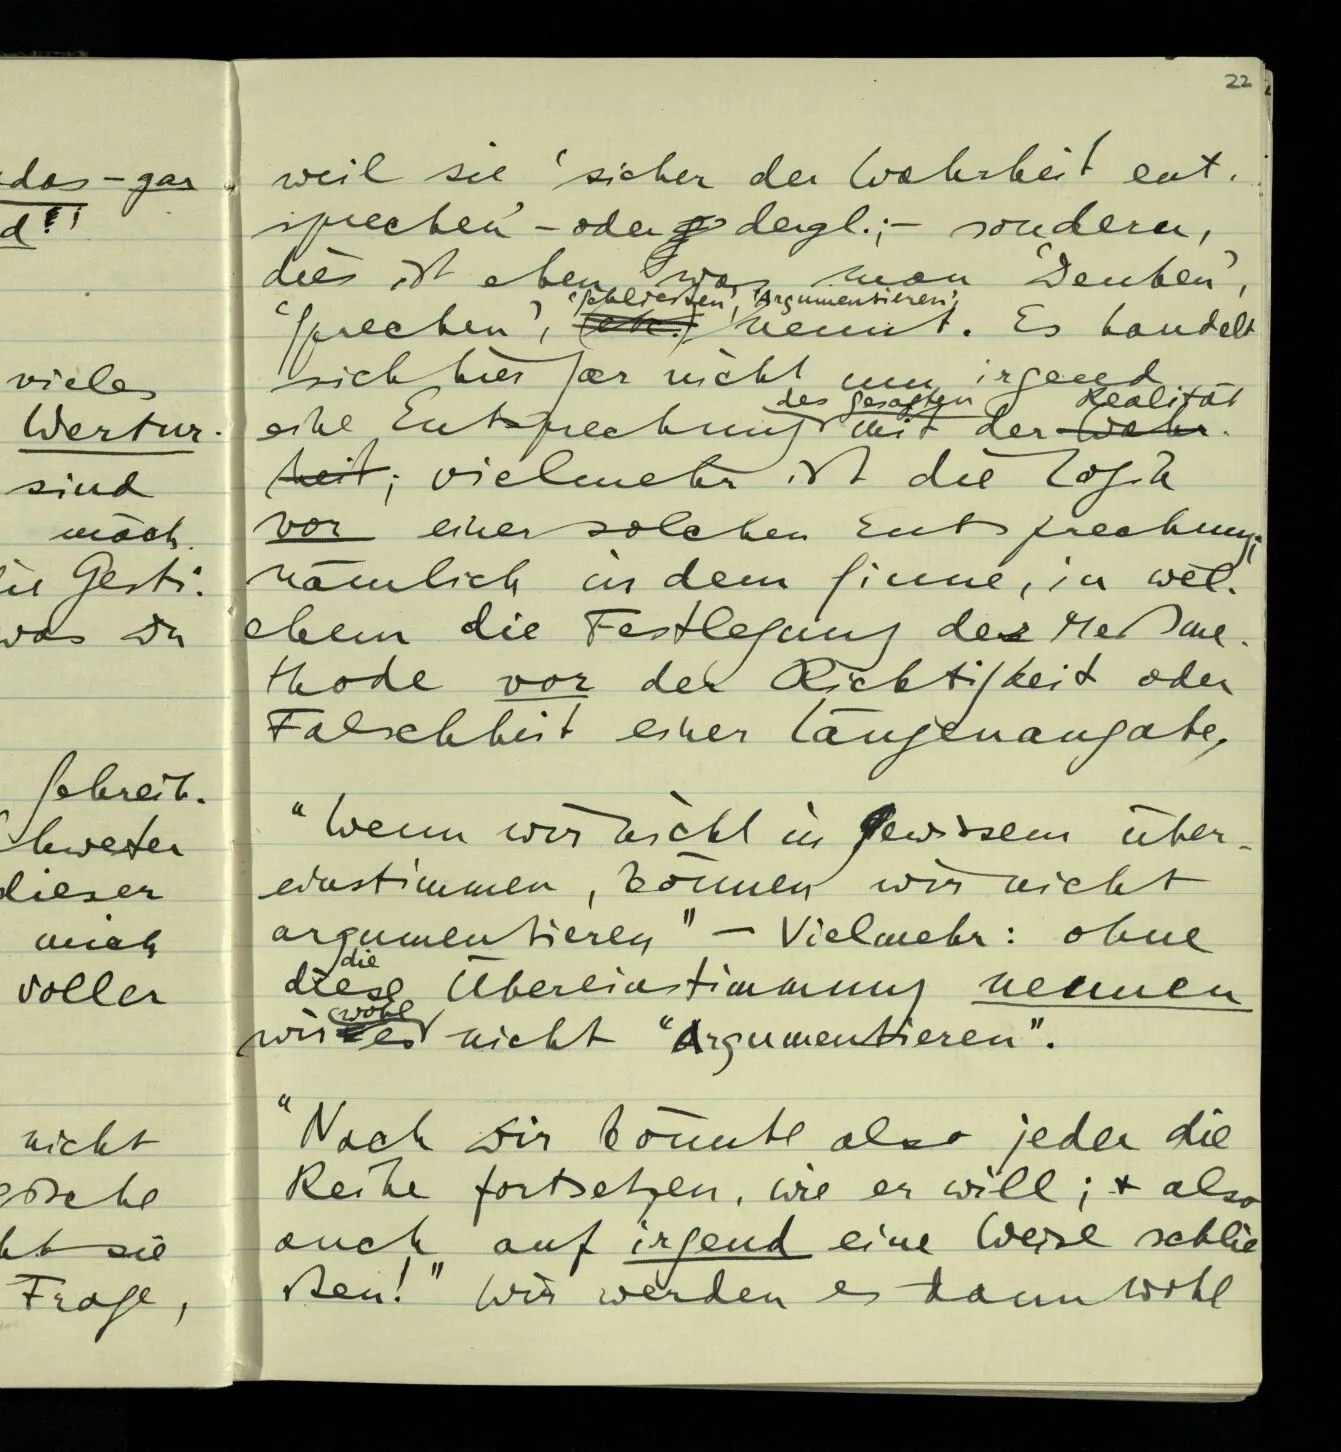 das – gar
d!!
viele
Wertur-
sind
mach-
Gesti-
was Du
Schreib-
dieser
mich
voller
nicht
sie
Frage,
22
weil sie ‘sicher der Wahrheit ent-
sprechen’ – oder dergl.; – sondern,
dies ist eben was man ‘Denken’,
‘Schliessen’, ‘Argumentieren’,
‘Sprechen’, nennt. Es handelt
sich hier gar nicht um irgend
des Gesagten Realität
eine Entsprechung mit der Wahr-
heit; vielmehr ist die Logik
vor einer solchen Entsprechung;
nämlich in dem Sinne, in wel-
chem die Festlegung der Meßme-
thode vor der Richtigkeit oder
Falschheit einer Längenangabe,
“Wenn wir nicht in gewissem über-
einstimmen, können wir nicht
argumentieren” – Vielmehr: ohne
die
diese Übereinstimmung nennen
wohl
wir es nicht “Argumentieren”.
“Nach Dir könnte also jeder die
Reihe fortsetzen, wie er will; + also
auch auf irgend eine Weise schlie
ßen!” Wir werden es dann wohl